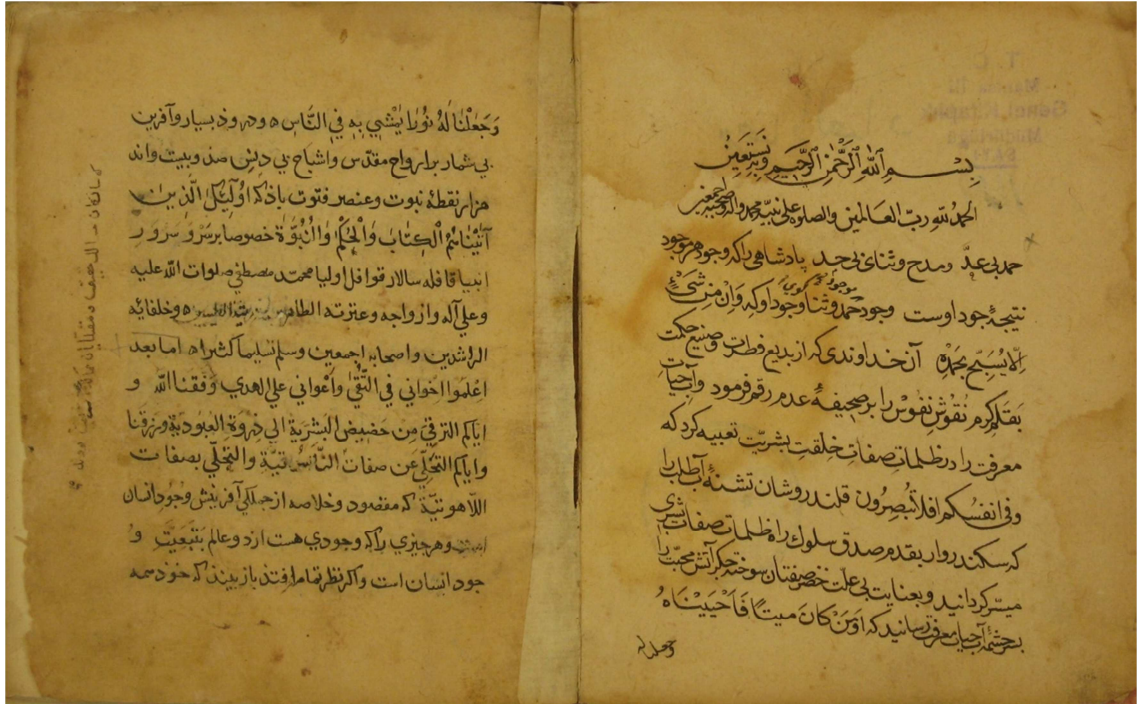 بِسْمِ ٱللّٰهِ ٱلرَّحْمٰنِ ٱلرَّحِيمِ وَبِهِ نَسْتَعِينُ
الحمد لله ربّ العالمين والصلوة على نبيّه محمد وآله وصحبه اجمعين
حمد بی عدّ و مدح و ثنای بی حد پادشاهی را که وجود هر موجود
نتیجهٔ جود اوست وجود حمد و ثنا وجود او که وَاِنْ مِنْ شَیْءٍ
اِلّا یُسَبِّحُ بِحَمْدِهْ آن خداوندی که از بدیع فطرت و صنیع حکمت
بقلم کرم نُقُوشِ نفُوسْ را بر صحیفهٔ عدم رقم فرمود وآب حیاتِ
معرفت را در ظلماتِ صفاتِ خلقتِ بشریّت تعبیه کرد که
وفی انفُسکم افلا تُبصِرُون قلندر وشان تشنهٔ آب طلب را
که سکندروار بقدم صدق سلوك راه ظلمات صفات بشری
میسّر کردانید و بعنایت بی علّت خضر صفتان سوخته جکر آتش محبّت را
بسرچشمهٔ آب حیات معرفت رسانید که اَوَمَنْ كَانَ مَيْتًا فَاَحْيَيْنَاهُ
وجعلنا له
وَجَعَلْنَا لَهُ نُورًا يَمْشِي بِهِ فِي النَّاسِ ه و درود بسیار وآفرین
بی شمار بر ارواح مقدّس واشباح بی دنِس صد وبیست واند
هزار نقطهٔ نبوت وعنصر فتوت باذ که اُولٰٓئِكَ الَّذِينَ
آتَيْنَاهُمُ الْكِتَابَ وَالْحُكْمَ وَالنُّبُوَّةَ خصوصا بر سَرْوَر
انبیا قافله سالار قوافل اولیا محمّد مصطفی صلوات الله علیه
وعلی آله وازواجه وعترته الطاهرین الطیبین ه وخلفائه
الراشدین واصحابه اجمعین وسلم تسلیما کثیرا ه اما بعد
اعلموا اخوانی فی التُّقَی واَعْوانی علی الهدی وفقنا الله و
ایاکم الترقّی مِن حَضیض البَشریَّةِ الی ذِروة العبُودیّة ورزقنا
وایاکم التخلّی عَن صفات النَّاسُوتیَّةِ والتحلّی بصفات
اللّاهوتیّة که مقصود وخلاصه از جملکی آفرینش وجُودِ انسان
است وهرجیزی را که وجودی هست از دو عالم بتَبَعیَّت و
جود انسان است واکر نظر تمام افتد باز بیند که خود همه